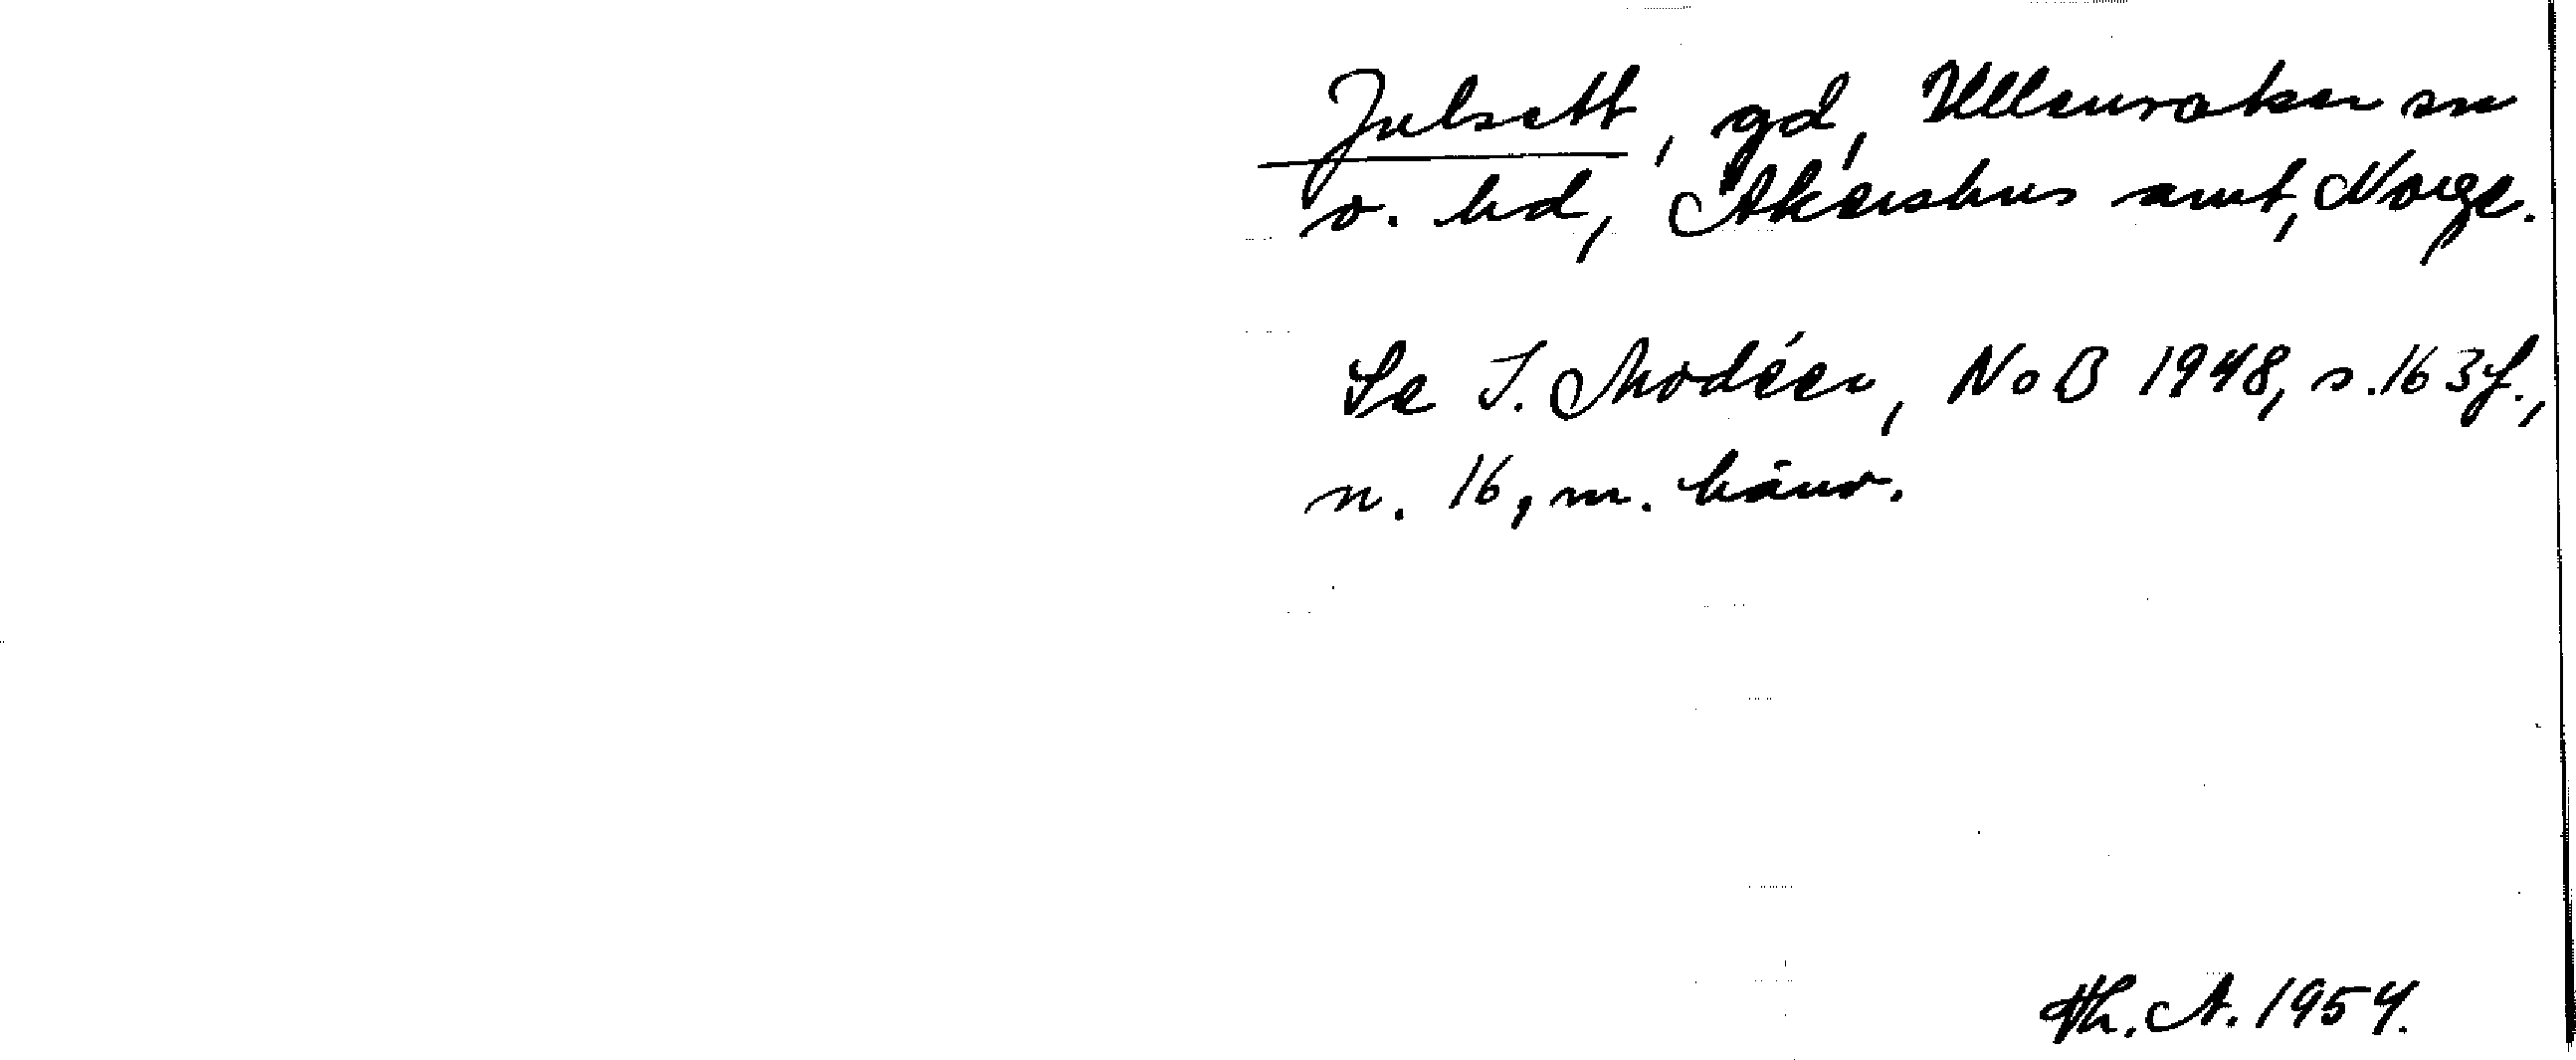 Julsett, gd, Ullensaker sn
o. hd, Akershus amt, Norge.
Se I. Modéer, NoB 1948, s. 163 f.,
n. 16, m. hänv.
Th. A. 1954.